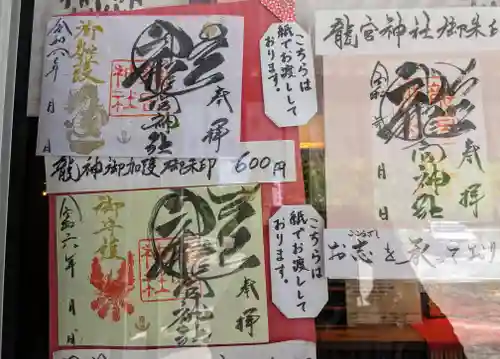 御加護
令和六年
月
日
神社
龍宮神社
奉拝
こちらは
紙でお渡しして
おります。
龍神御加護御朱印 600円
御守護
令和六年
月
日
龍宮神社
奉拝
こちらは
紙でお渡しして
おります。
龍宮神社御朱印
奉拝
龍宮神社
令和
年
月
日
お志を承って